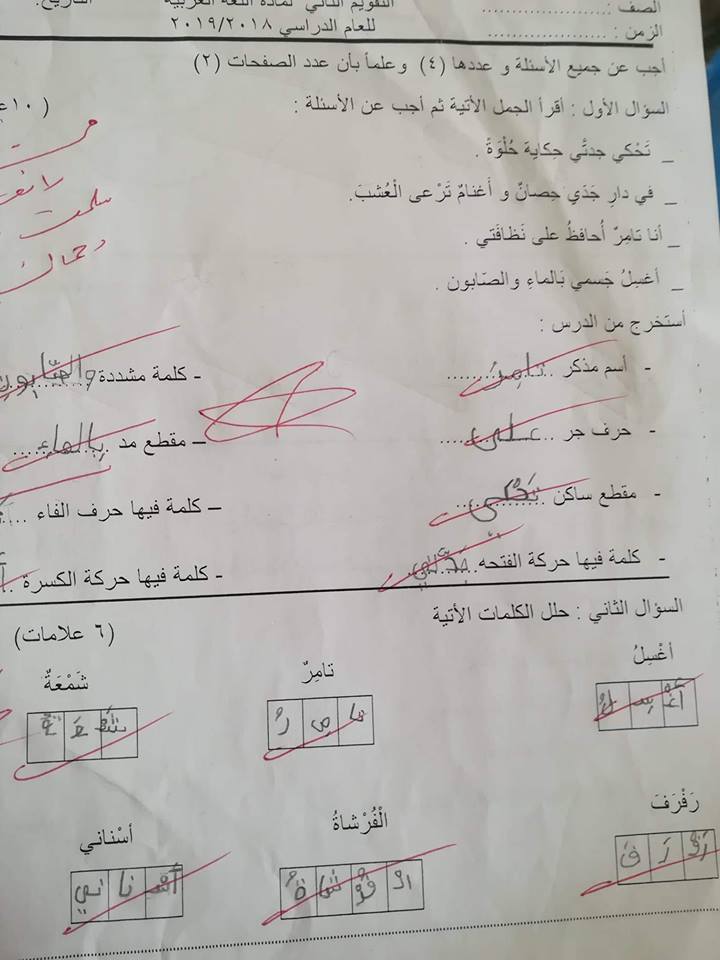 الصف : .....................
التقويم الثاني لمادة اللغة العربية
التاريخ:
الزمن : .....................
للعام الدراسي ٢٠١٩/٢٠١٨
أجب عن جميع الأسئلة و عددها (٤) وعلماً بأن عدد الصفحات (٢)
السؤال الأول : أقرأ الجمل الأتية ثم أجب عن الأسئلة : (١٠
_ تَحْكي جدتَّي حِكايةَ حُلْوَةً .
_ في دارِ جَدَي حِصانٌ و أَغنامٌ تَرْعى الْعُشبَ.
_ أنا تامِرٌ أُحافظُ على نَظافَتي .
_ أغسِلُ جَسمي بَالماءِ والصّابون .
أستخرج من الدرس :
- أسم مذكر تامِرٌ
- كلمة مشددة والصّابون
- حرف جر على
– مقطع مد بالماءِ
- مقطع ساكن تَحْكي
– كلمة فيها حرف الفاء
- كلمة فيها حركة الفتحه
- كلمة فيها حركة الكسرة
السؤال الثاني : حلل الكلمات الأتية (٦ علامات)
أغْسِلُ
تامِرٌ
شَمْعَةٌ
أغْ سِ لُ
تا مِ رٌ
شَمْ عَ ةٌ
رَفْرَفَ
الْفُرْشاةُ
أسْناني
رَفْ رَ فَ
الْ فُرْ شا ةُ
أسْ نا ني